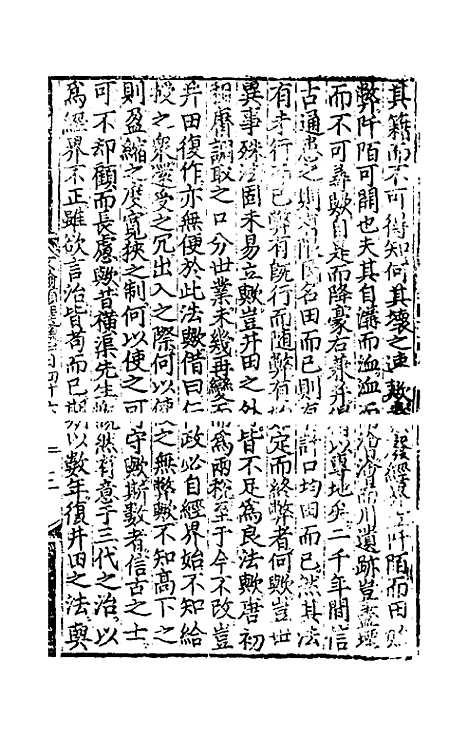 其籍而不可得知何其壞之速歟 經界 阡陌而田
弊阡陌可開也夫其自溝而洫洫而澮澮而川遺跡豈盡堙
而不可尋歟自是而降豪右兼并 以專地乎二千年間信
古通患之則有限民名田而已則有計口均田而已然其法
有未行而已弊有旣行而隨弊有 定而終弊者何歟豈世
異事殊法固未易立歟豈井田之外皆不足爲良法歟唐初
租庸調取之口分世業未幾再變而爲兩稅至于今不改豈
井田復作亦無便於此法歟借曰仁政必自經界始不知給
授之衆還受之冗出入之際何以使之無弊歟不知高下之
則盈縮之度寬狹之制何以使之可守歟斯數者信古之士
可不却顧而長慮歟昔橫渠先生慨然有意于三代之治以
爲經界不正雖欲言治皆苟而已期以數年復井田之法與